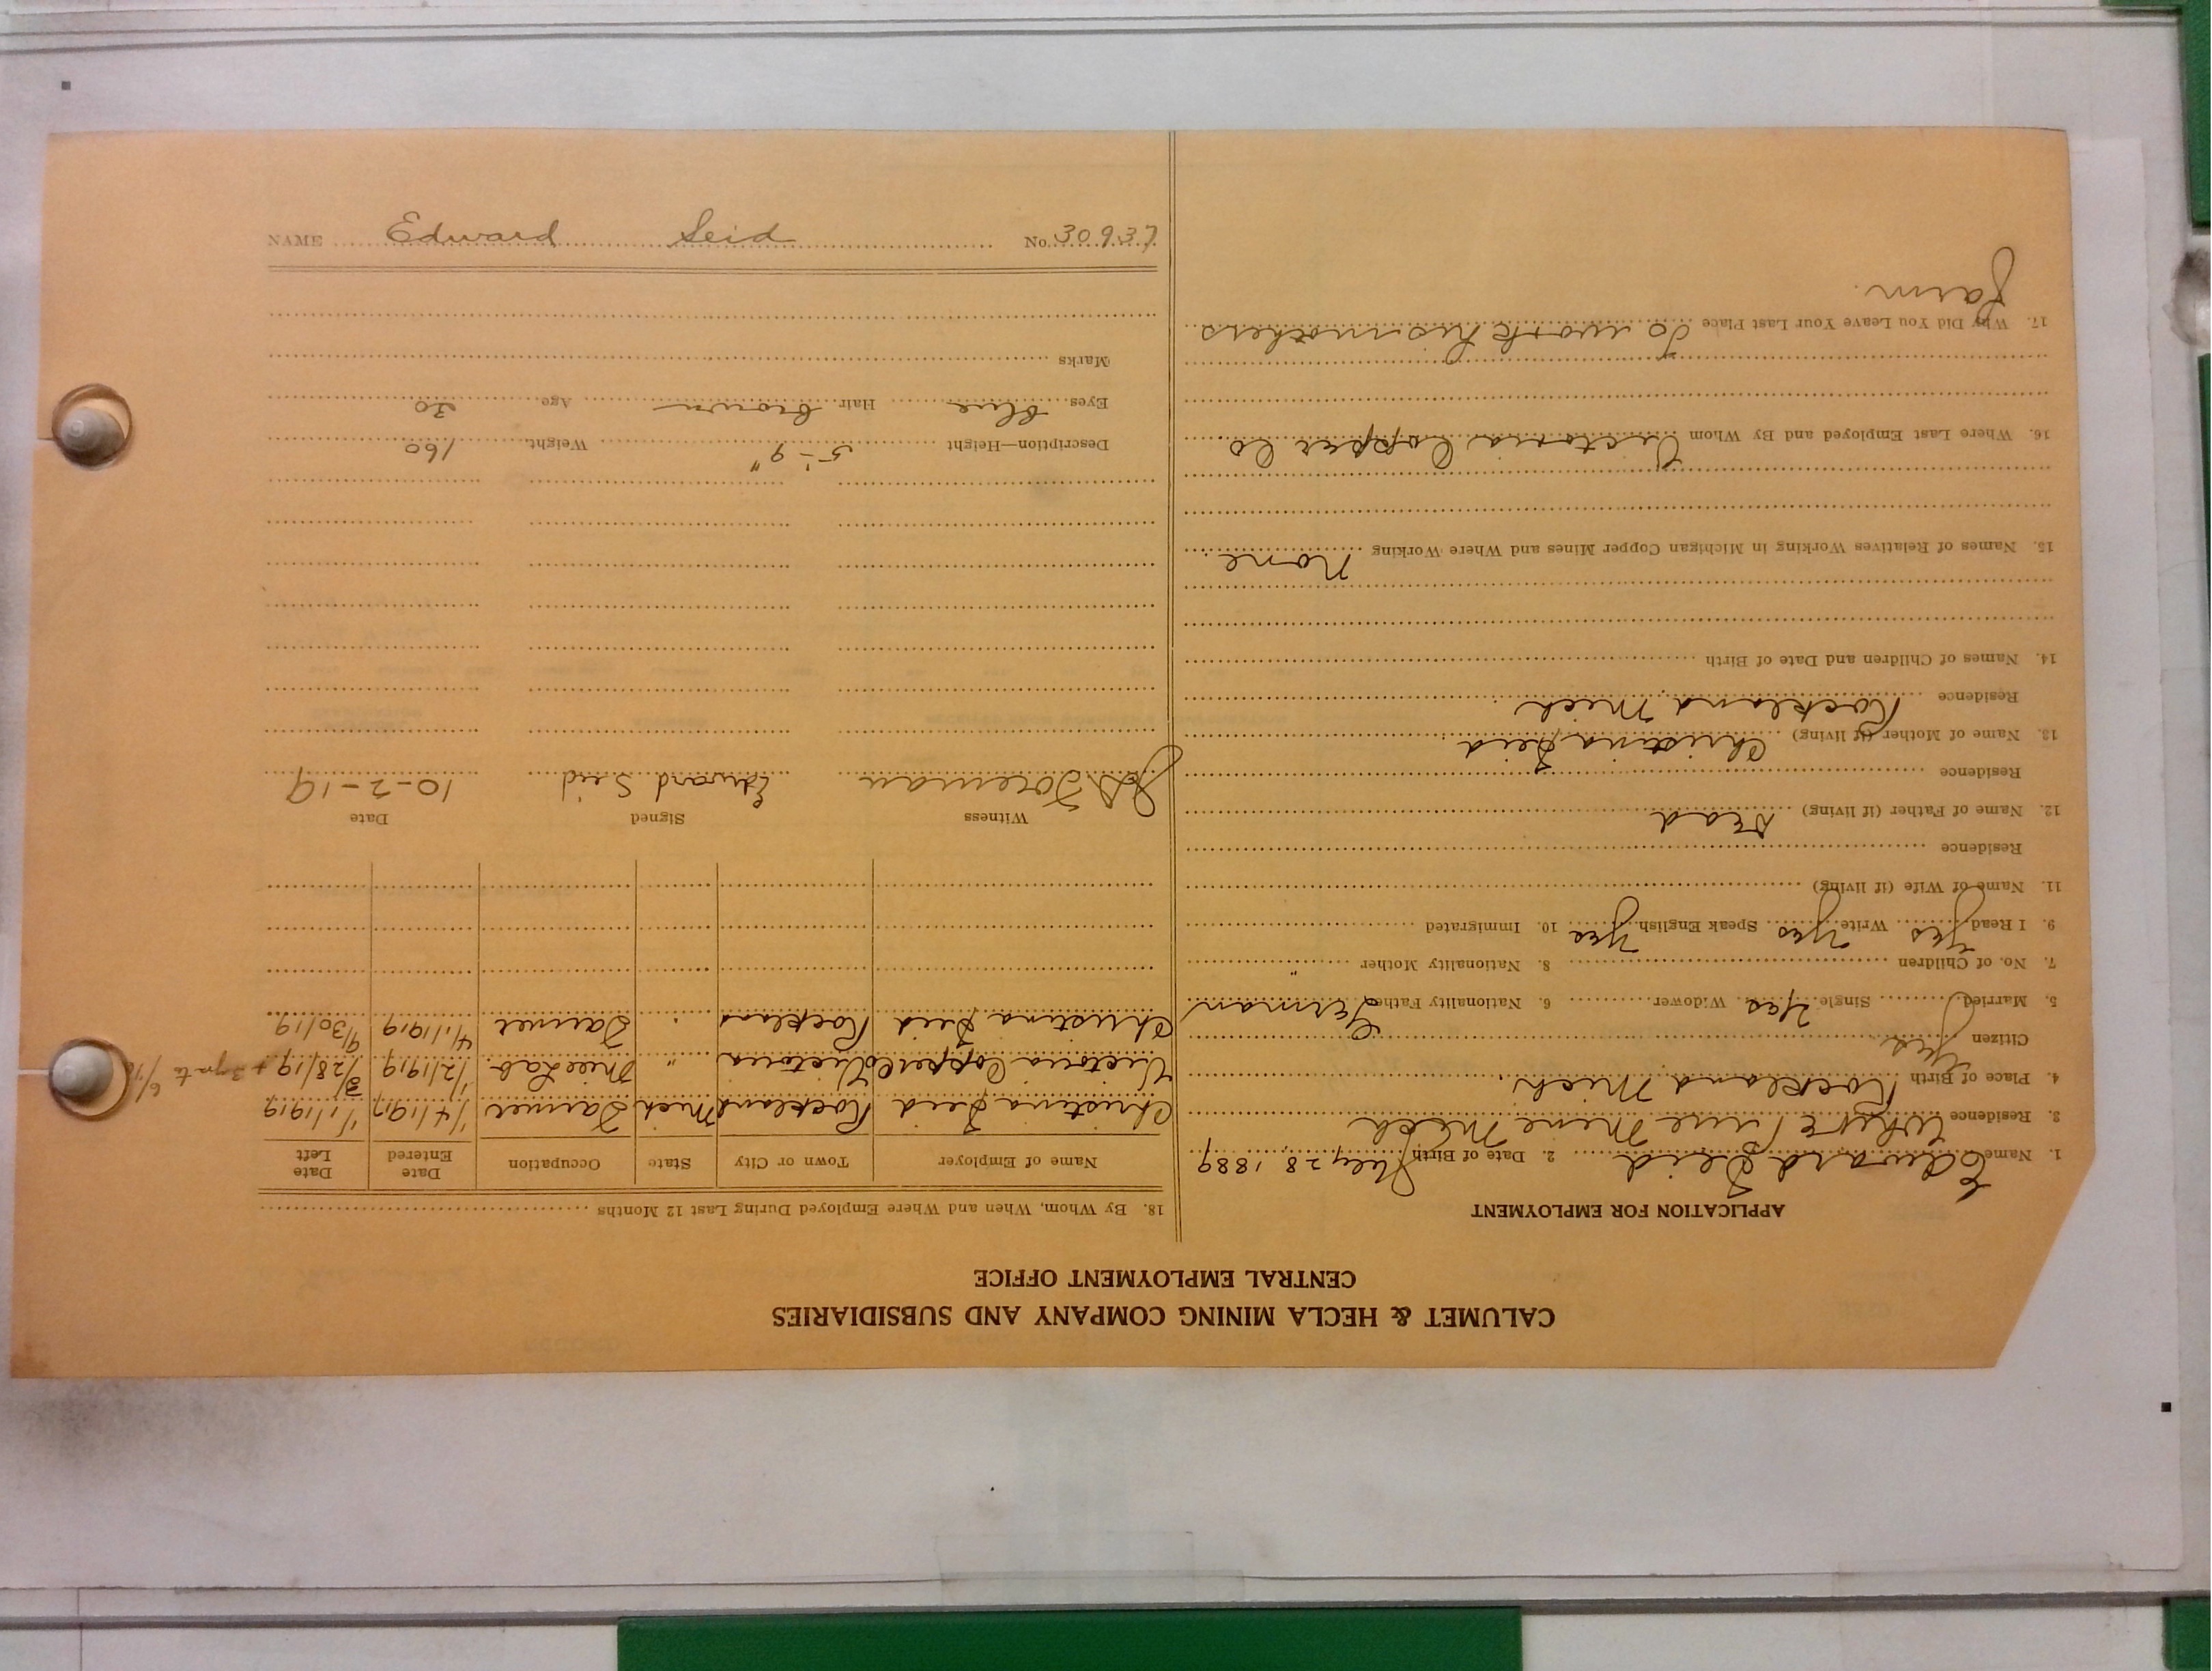 CALUMET & HECLA MINING COMPANY AND SUBSIDIARIES
CENTRAL EMPLOYMENT OFFICE
APPLICATION FOR EMPLOYMENT
1. Name Edward Seid 2. Date of Birth July 28, 1889
3. Residence White Pine Mine Mich
4. Place of Birth Rockland Mich.
Citizen Yes
5. Married Single Yes Widower 6. Nationality Father German
7. No. of Children 8. Nationality Mother "
9. I Read Yes Write Yes Speak English Yes 10. Immigrated
11. Name of Wife (if living)
Residence
12. Name of Father (if living) Dead
Residence
13. Name of Mother (if living) Christina Seid
Residence Rockland Mich
14. Names of Children and Date of Birth
15. Names of Relatives Working in Michigan Copper Mines and Where Working None
16. Where Last Employed and By Whom Victoria Copper Co.
17. Why Did You Leave Your Last Place To work his mothers
farm.
18. By Whom, When and Where Employed During Last 12 Months
Name of Employer Town or City State Occupation Date Entered Date Left
Christina Seid Rockland Mich Farmer 1/4/1917 1/1/1919
Victoria Copper Co Victoria " Mill Lab. 1/2/1919 3/28/19
Christina Seid Rockland " Farmer 4/1/1919 9/30/19
Witness Signed Date
Foreman Edward Seid 10-2-19
Description—Height 5'-9" Weight 160
Eyes Blue Hair Brown Age 30
Marks
NAME Edward Seid No. 30937